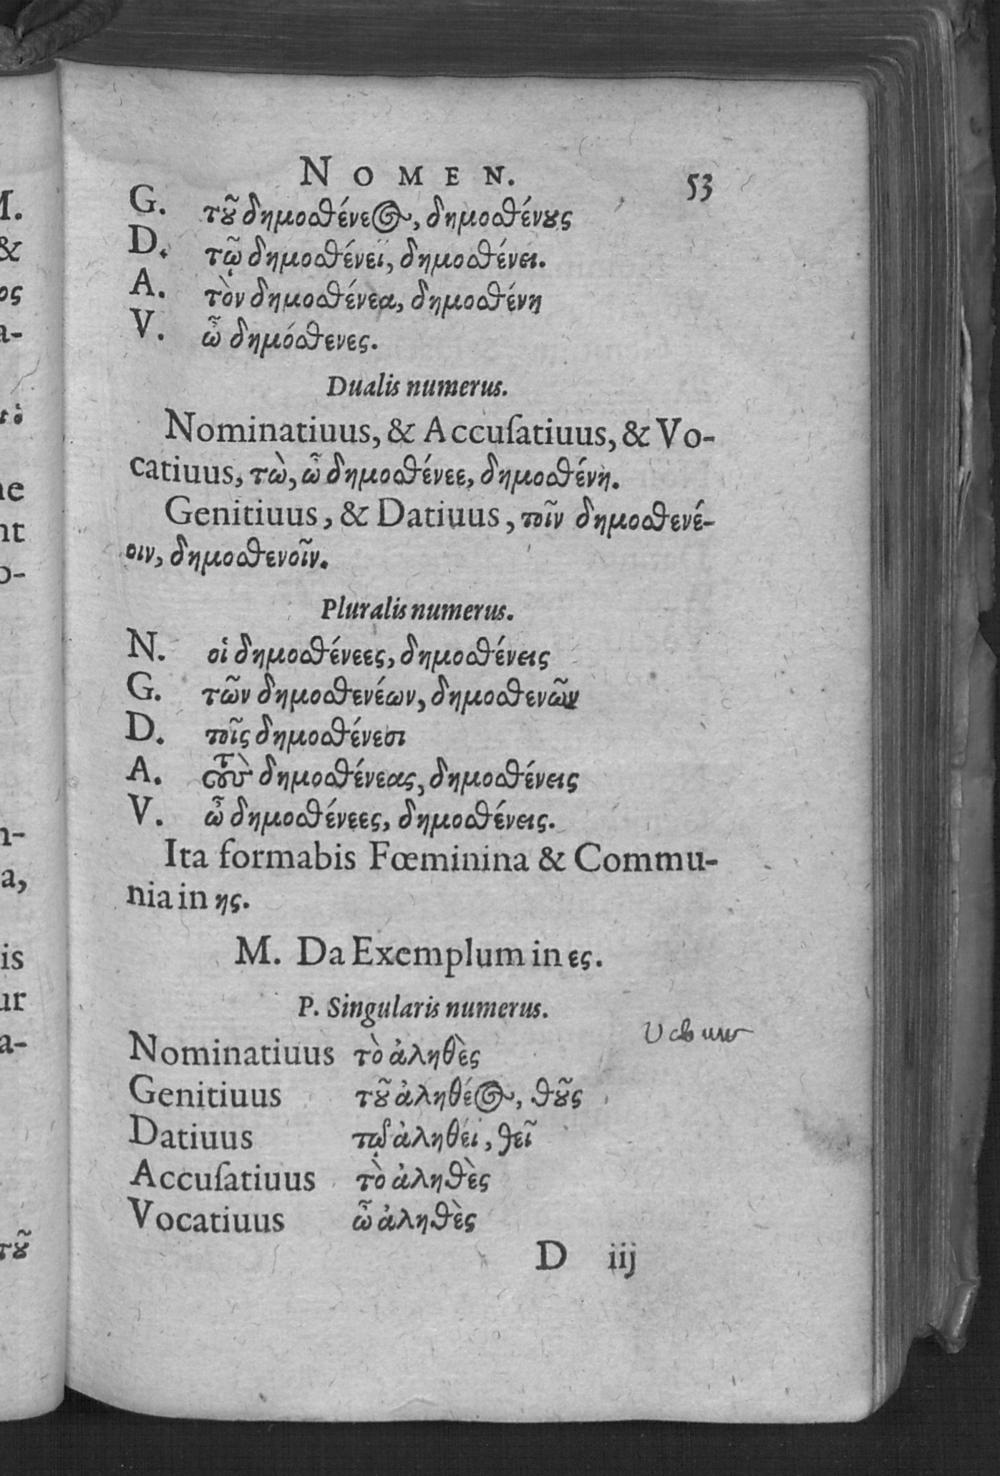 NOMEN. 53
G. τοῦ δημοσθένεος, δημοσθένους
D. τῷ δημοσθένεϊ, δημοσθένει.
A. τὸν δημοσθένεα, δημοσθένη
V. ὦ δημόσθενες.
Dualis numerus.
Nominatiuus, & Accuſatiuus, & Vo-
catiuus, τὼ, ὦ δημοσθένεε, δημοσθένη.
Genitiuus, & Datiuus, τοῖν δημοσθενέ-
οιν, δημοσθενοῖν.
Pluralis numerus.
N. οἱ δημοσθένεες, δημοσθένεις
G. τῶν δημοσθενέων, δημοσθενῶν
D. τοῖς δημοσθένεσι
A. τοὺς δημοσθένεας, δημοσθένεις
V. ὦ δημοσθένεες, δημοσθένεις.
Ita formabis Fœminina & Commu-
nia in ης.
M. Da Exemplum in ες.
P. Singularis numerus.
Nominatiuus τὸ ἀληθὲς
Genitiuus τοῦ ἀληθέος, θοῦς
Datiuus τῷ ἀληθέϊ, θεῖ
Accuſatiuus τὸ ἀληθὲς
Vocatiuus ὦ ἀληθὲς
D iij